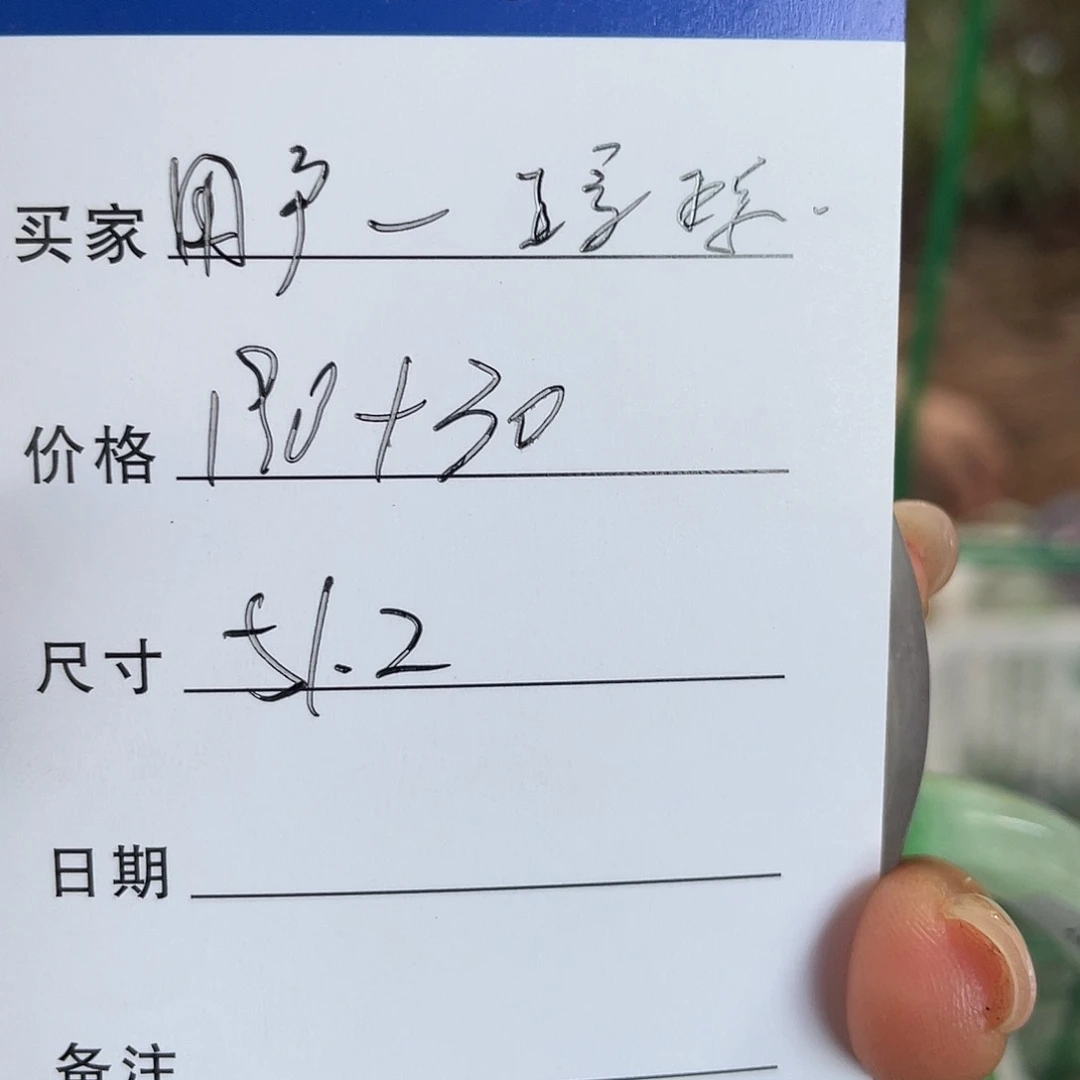 买家 用户一
价格 180+30
尺寸 51.2
日期
备注